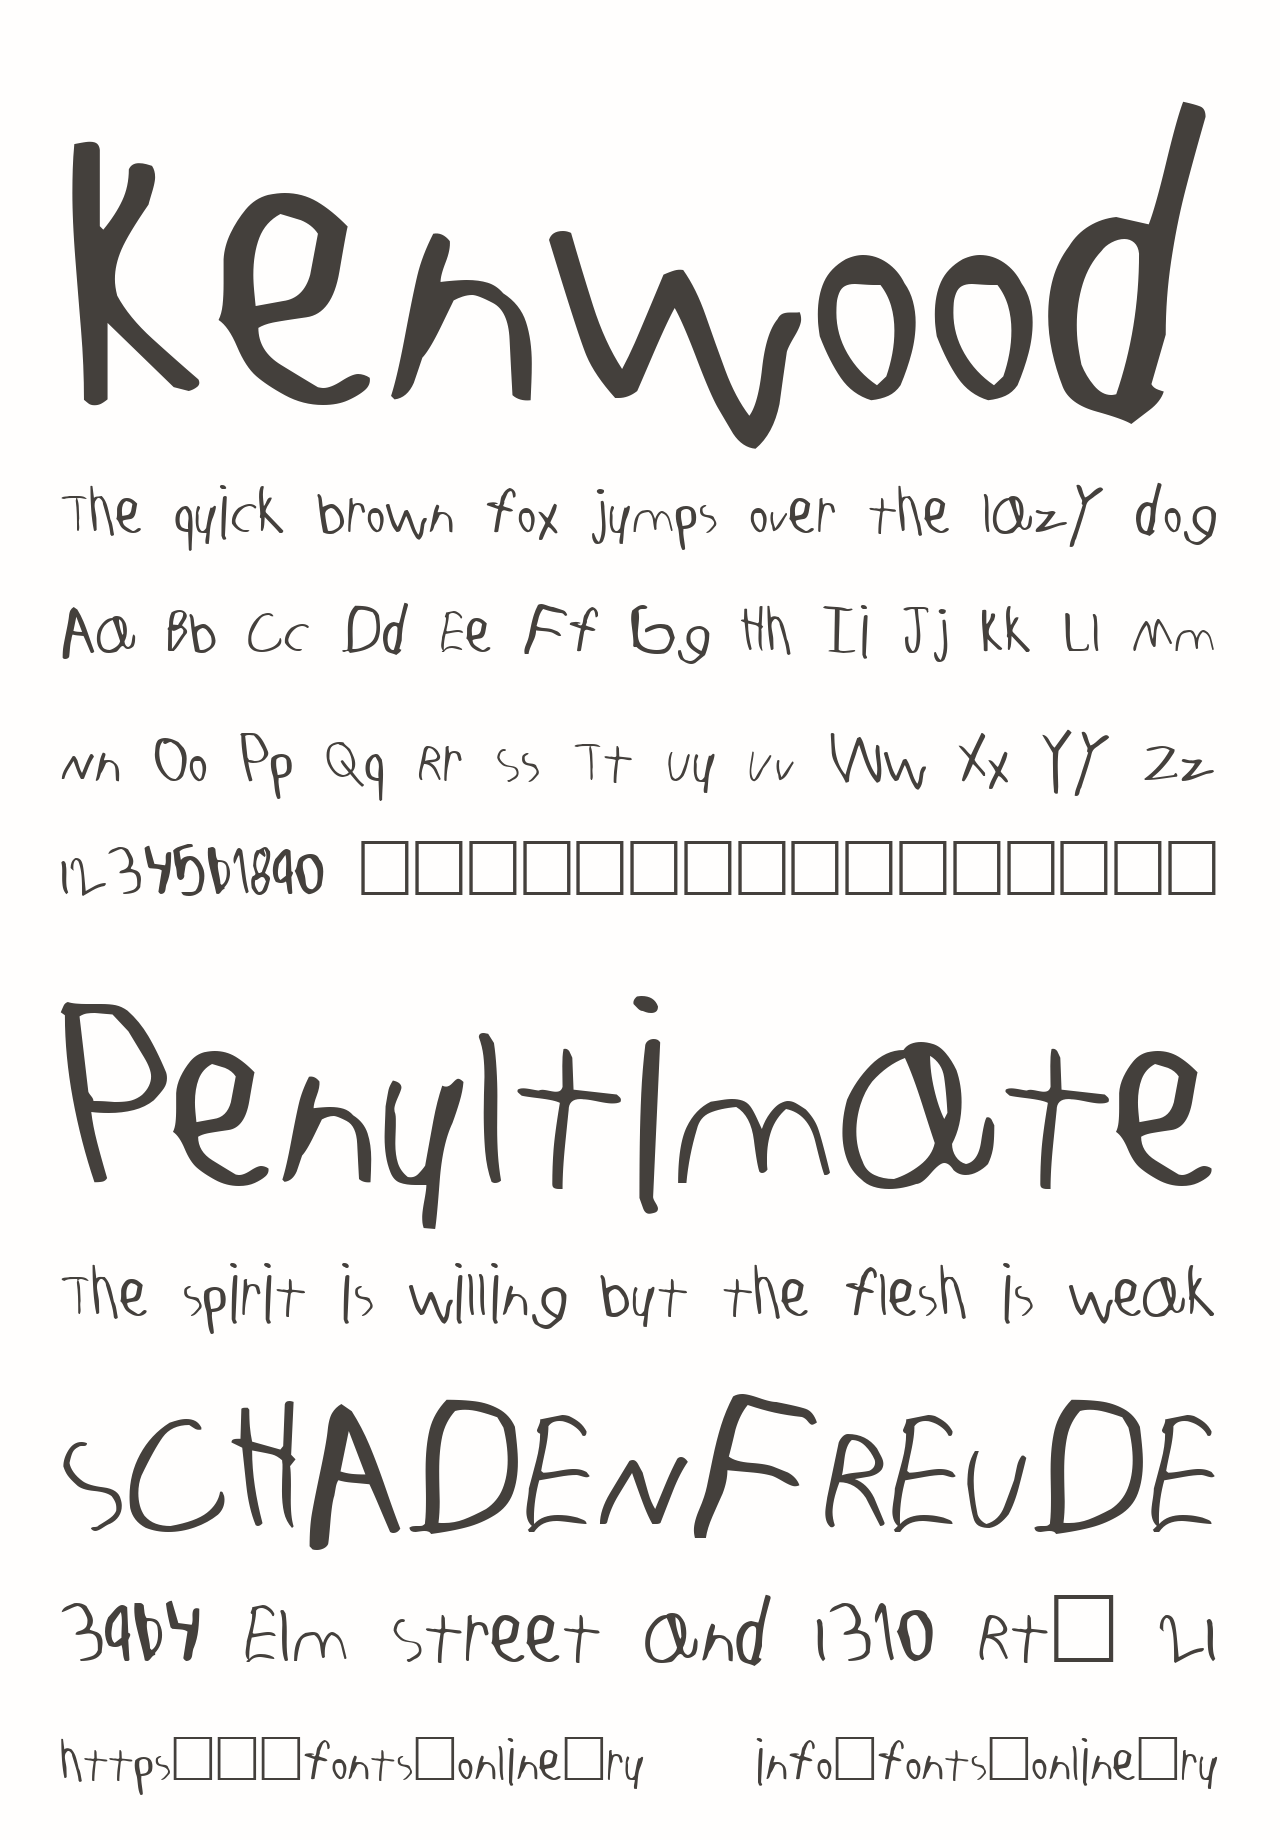 Kenwood
The quick brown fox jumps over the lazy dog
Aa Bb Cc Dd Ee Ff Gg Hh Ii Jj Kk Ll Mm
Nn Oo Pp Qq Rr Ss Tt Uu Vv Ww Xx Yy Zz
1234567890 □□□□□□□□□□□□□□□□
Penultimate
The spirit is willing but the flesh is weak
SCHADENFREUDE
3964 Elm street and 1370 Rt□ 21
https□□□fonts□online□ru info□fonts□online□ru